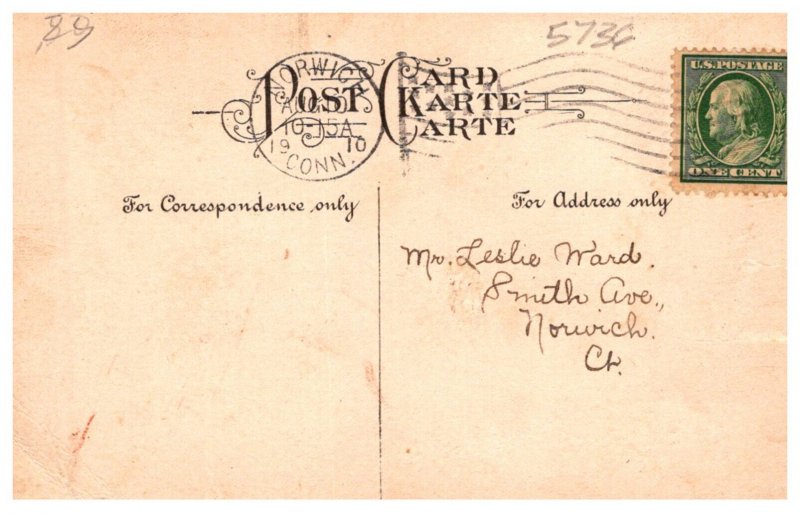 89
5736
NORWICH
10-15A
19 10
CONN.
POST CARD
KARTE
CARTE
U.S. POSTAGE
ONE CENT
For Correspondence only
For Address only
Mr. Leslie Ward.
Smith Ave.,
Norwich.
Ct.